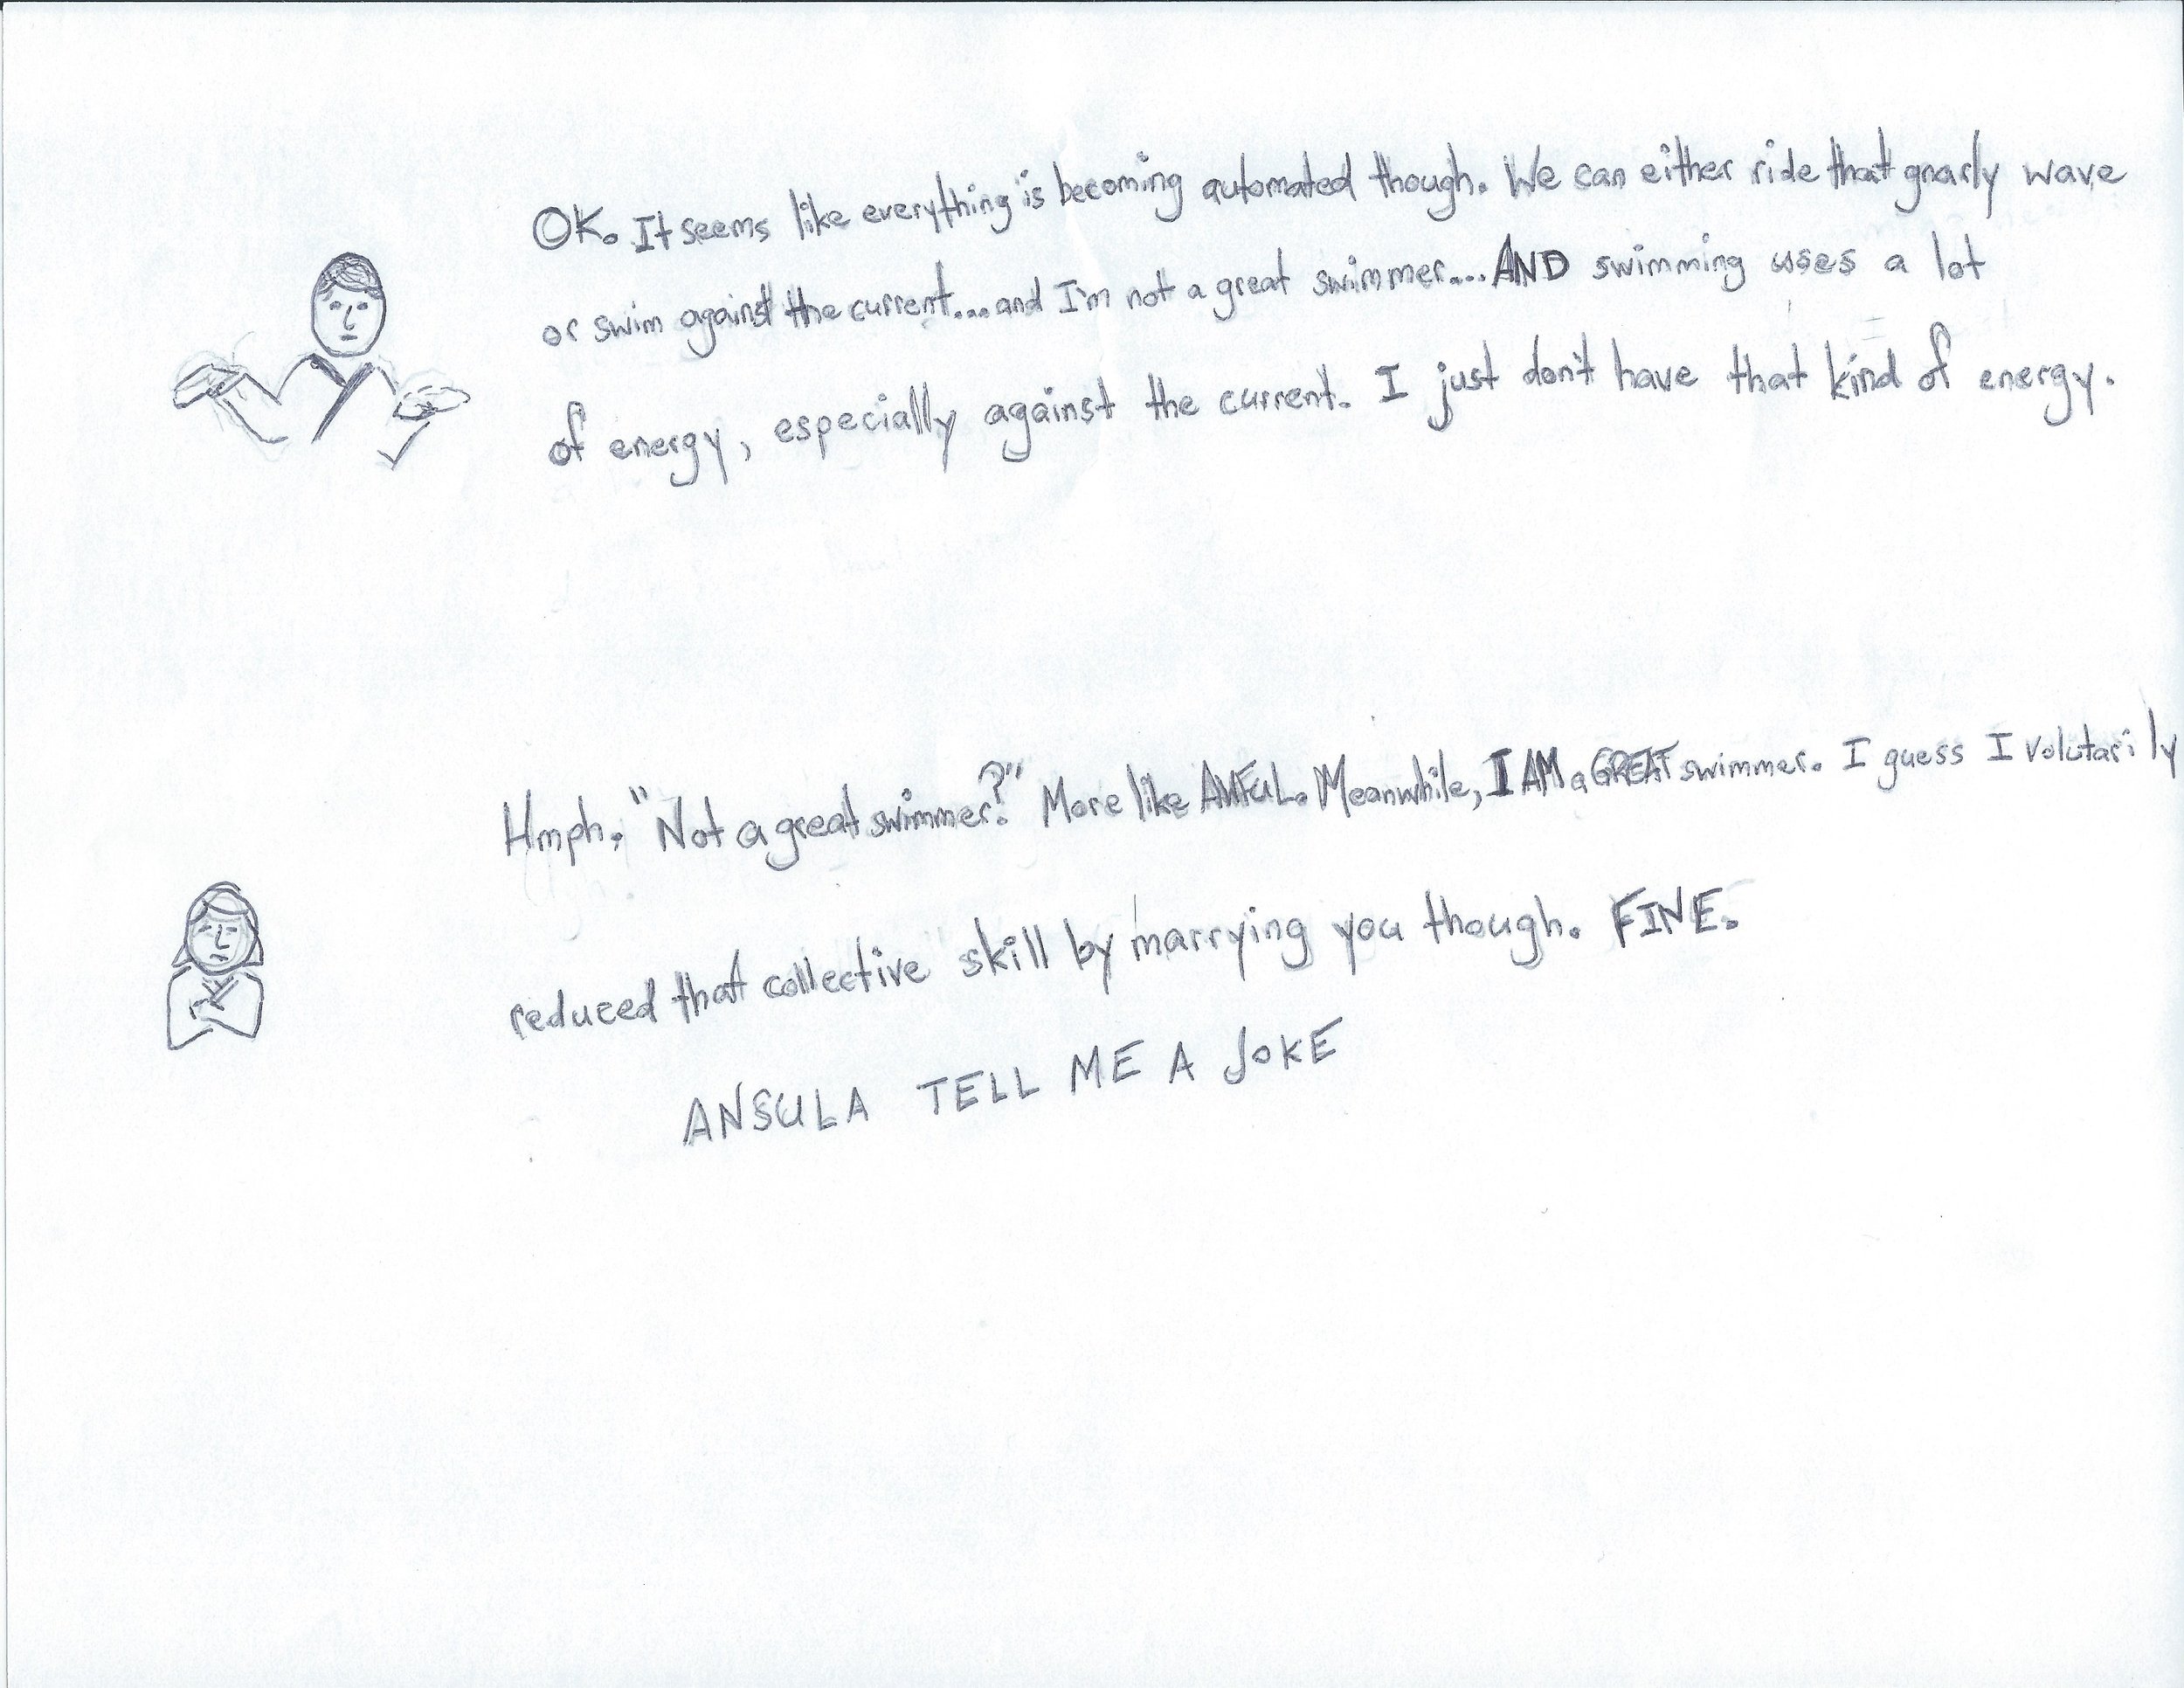 OK. It seems like everything is becoming automated though. We can either ride that gnarly wave
or swim against the current...and I'm not a great swimmer... AND swimming uses a lot
of energy, especially against the current. I just don't have that kind of energy.
Hmph. "Not a great swimmer?" More like AWFUL. Meanwhile, I AM a GREAT swimmer. I guess I volutarily
reduced that collective skill by marrying you though. FINE.
ANSULA TELL ME A JOKE